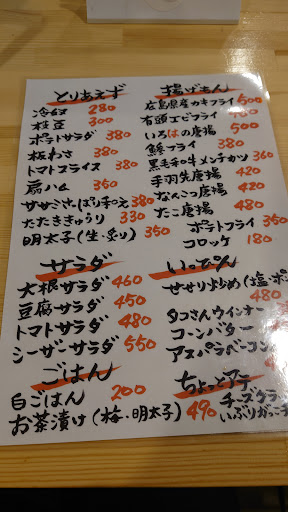 とりあえず
冷奴 280
枝豆 300
ポテトサラダ 380
板わさ 380
トマトスライス 380
肩ハム 350
ササミさっぱり和え 380
たたききゅうり 330
明太子(生・炙り) 350
サラダ
大根サラダ 460
豆腐サラダ 450
トマトサラダ 480
シーザーサラダ 550
ごはん
白ごはん 200
お茶漬け(梅・明太子) 490
揚げもん
広島県産カキフライ 500
有頭エビフライ 480
いろはの唐揚 500
鯵フライ 380
黒毛和牛メンチカツ 360
手羽先唐揚 420
なんこつ唐揚 420
たこ唐揚 480
ポテトフライ 350
コロッケ 180
いっぴん
せせり炒め(塩・ポ
480
タコさんウインナー
コーンバター
アスパラベーコン
ちょっとアテ
チーズクラ
いぶりがっこチ